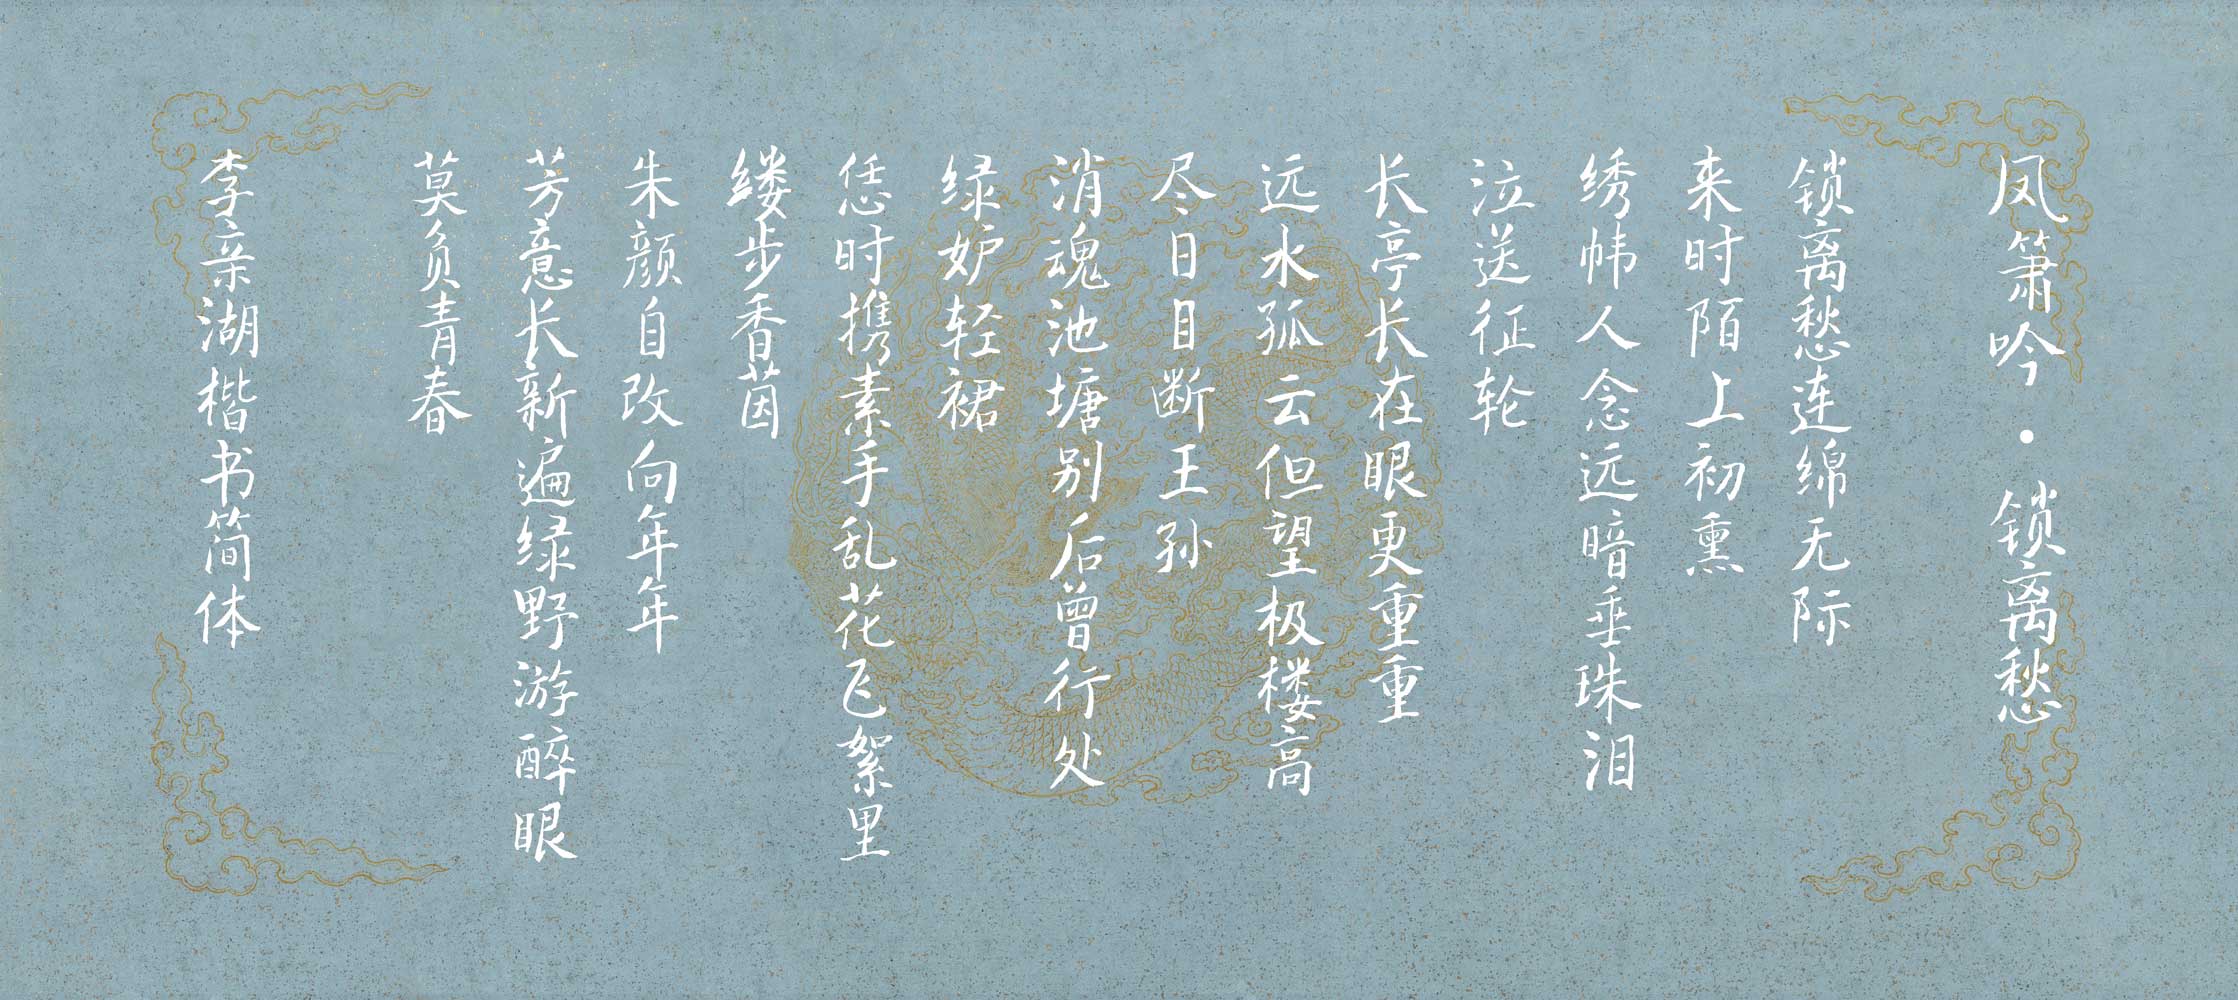 凤箫吟·锁离愁
锁离愁连绵无际
来时陌上初熏
绣帏人念远暗垂珠泪
泣送征轮
长亭长在眼更重重
远水孤云但望极楼高
尽日目断王孙
消魂池塘别后曾行处
绿妒轻裙
恁时携素手乱花飞絮里
缕步香茵
朱颜自改向年年
芳意长新遍绿野游醉眼
莫负青春
李亲湖楷书简体